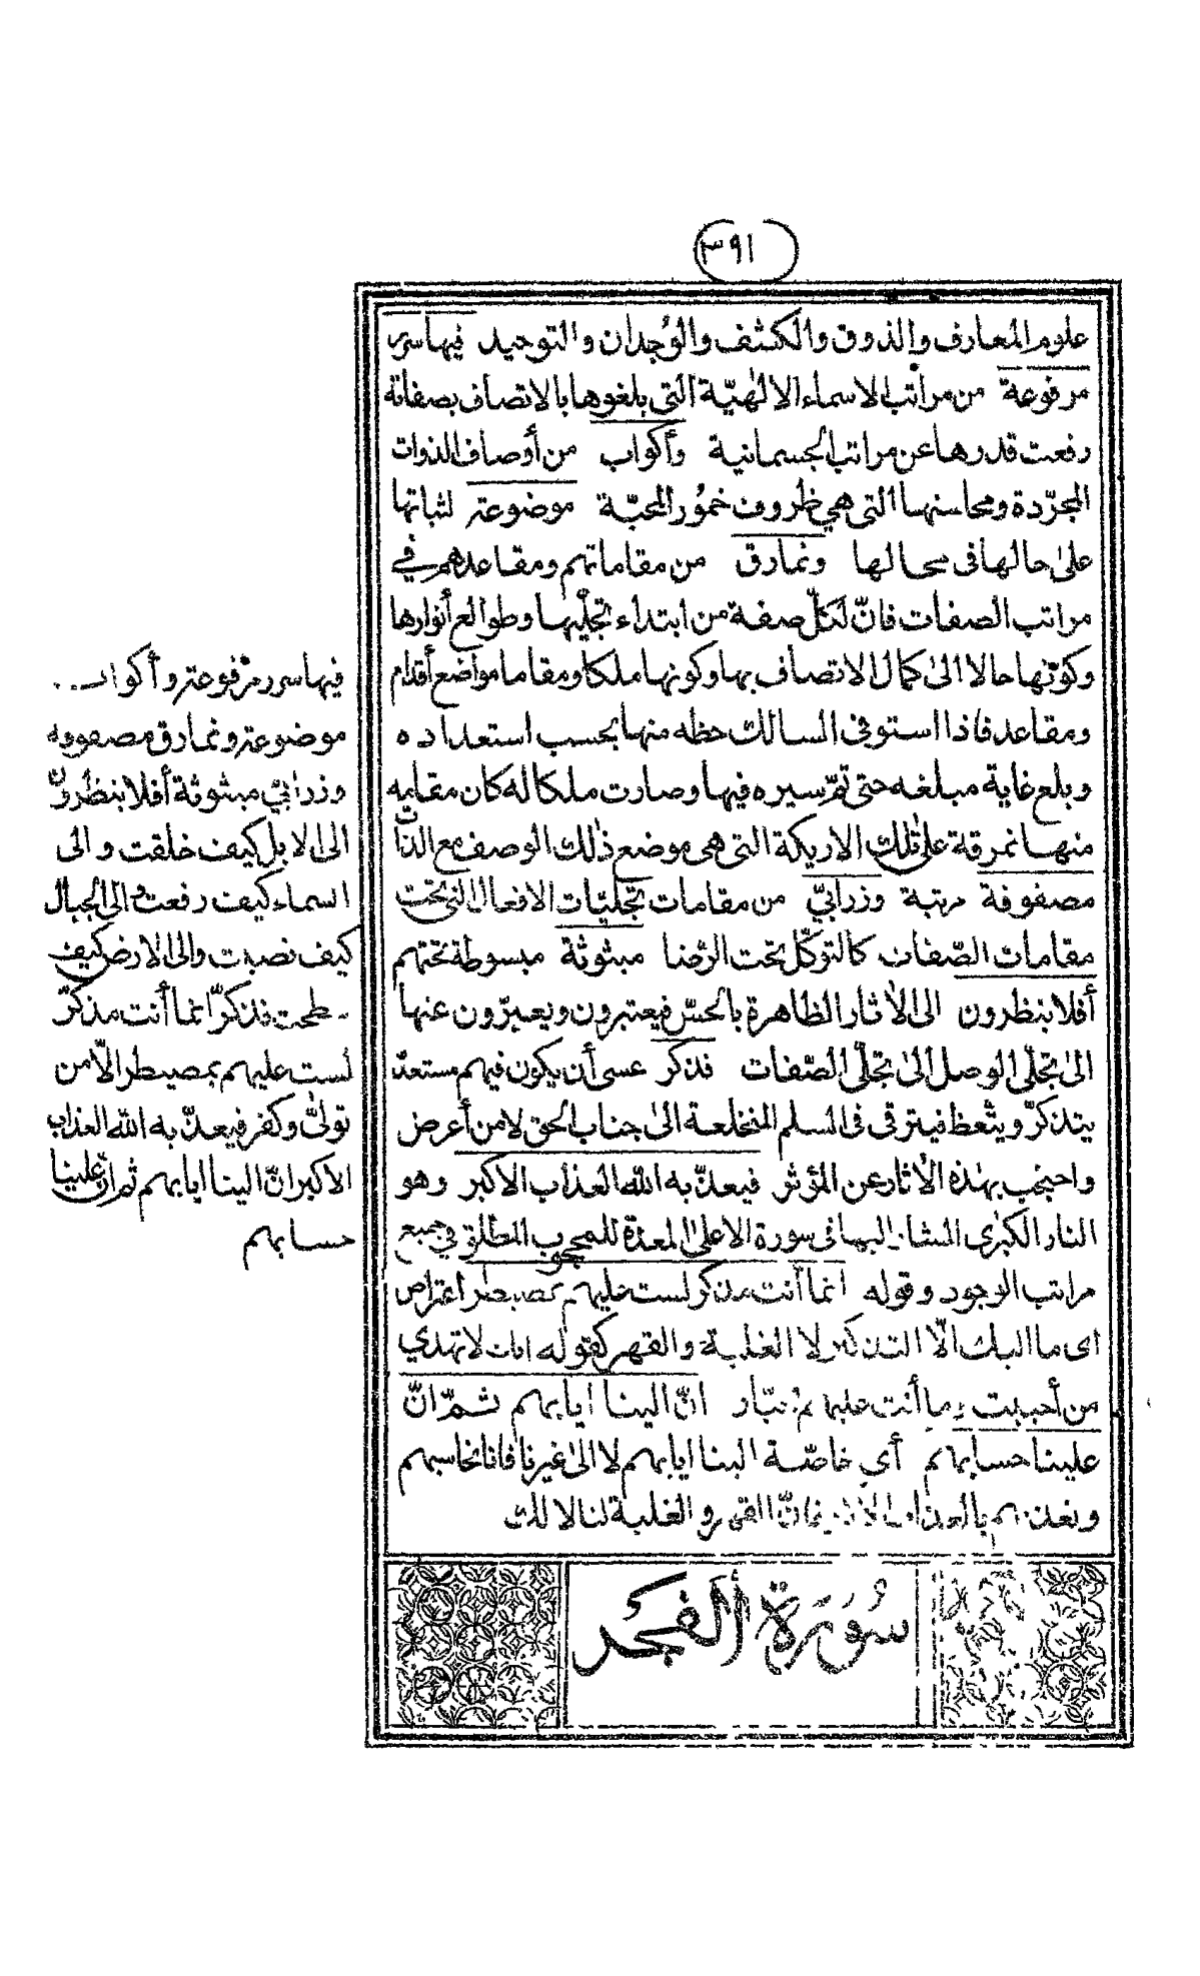 ٣٩١
علوم المعارف والذوق والكشف والوجدان والتوحيد فيها سرر
مرفوعة من مراتب الاسماء الالٰهيّة التى بلغوها بالاتصاف بصفاته
رفعت قدرها عن مراتب الجسمانية وأكواب من أوصاف الذوات
المجرّدة ومحاسنها التى هي ظروف خمُور المحبّة موضوعة لثباتها
علىٰ حالها فى محالها ونمارق من مقاماتهم ومقاعدهم في
مراتب الصفات فانّ لكلّ صفة من ابتداء تجلّيها وطوالع أنوارها
وكونها حالا الىٰ كمال الاتصاف بها وكونها ملكا ومقاما مواضع أقدام
ومقاعد فاذا استوفى السالك حظه منها بحسب استعداده
وبلغ غاية مبلغه حتى تمّ سيره فيها وصارت ملكا له كان مقامه
منها نمرقة على تلك الاريكة التى هى موضع ذٰلك الوصف مع الذات
مصفوفة مرتبة وزرابيّ من مقامات تجليّات الافعال التى تحت
مقامات الصّفات كالتوكّل تحت الرّضا مبثوثة مبسوطة تحتهم
أفلا ينظرون الى الاٰثار الظاهرة بالحسّ فيعتبرون ويعبرّون عنها
الىٰ تجلّى الوصل الىٰ تجلّى الصّفات فذكر عسى أن يكون فيهم مستعدّ
يتذكرّ ويتّعظ فيترقى فى السلم المتخلعة الىٰ جناب الحق لا من أعرض
واحتجب بهٰذه الاٰثار عن المؤثر فيعذّبه الله العذاب الاكبر وهو
النار الكبرٰى المشار اليها فى سورة الاعلىٰ المعدّة للمحجوب المطلق في جميع
مراتب الوجود وقوله انما أنت مذكر لست عليهم بمصيطر اعتراض
اى ما اليك الّا التذكير لا الغلبة والقهر كقوله انك لا تهدي
من أحببت وما أنت عليهم بجبّار انّ الينا ايابهم ثمّ انّ
علينا حسابهم أي خاصّة الينا ايابهم لا الىٰ غيرنا فانا نحاسبهم
ونعذبهم بالعذاب الاكبر فانّ القهر والغلبة لنا لا لك
سُورَة ألفجر
فيها سرر مرفوعة وأكواب
موضوعة ونمارق مصفوفة
وزرابيّ مبثوثة أفلا ينظرون
الى الابل كيف خلقت والى
السماء كيف رفعت والى الجبال
كيف نصبت والى الارض كيف
سطحت فذكرّ انما أنت مذكرّ
لست عليهم بمصيطر الّا من
تولىّ وكفر فيعذّبه الله العذاب
الاكبر انّ الينا ايابهم ثم ان علينا
حسابهم